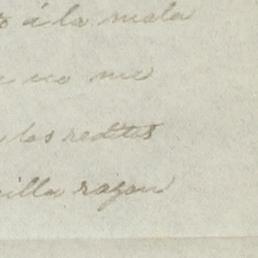 á la mala
no me
las redtes
illa razon